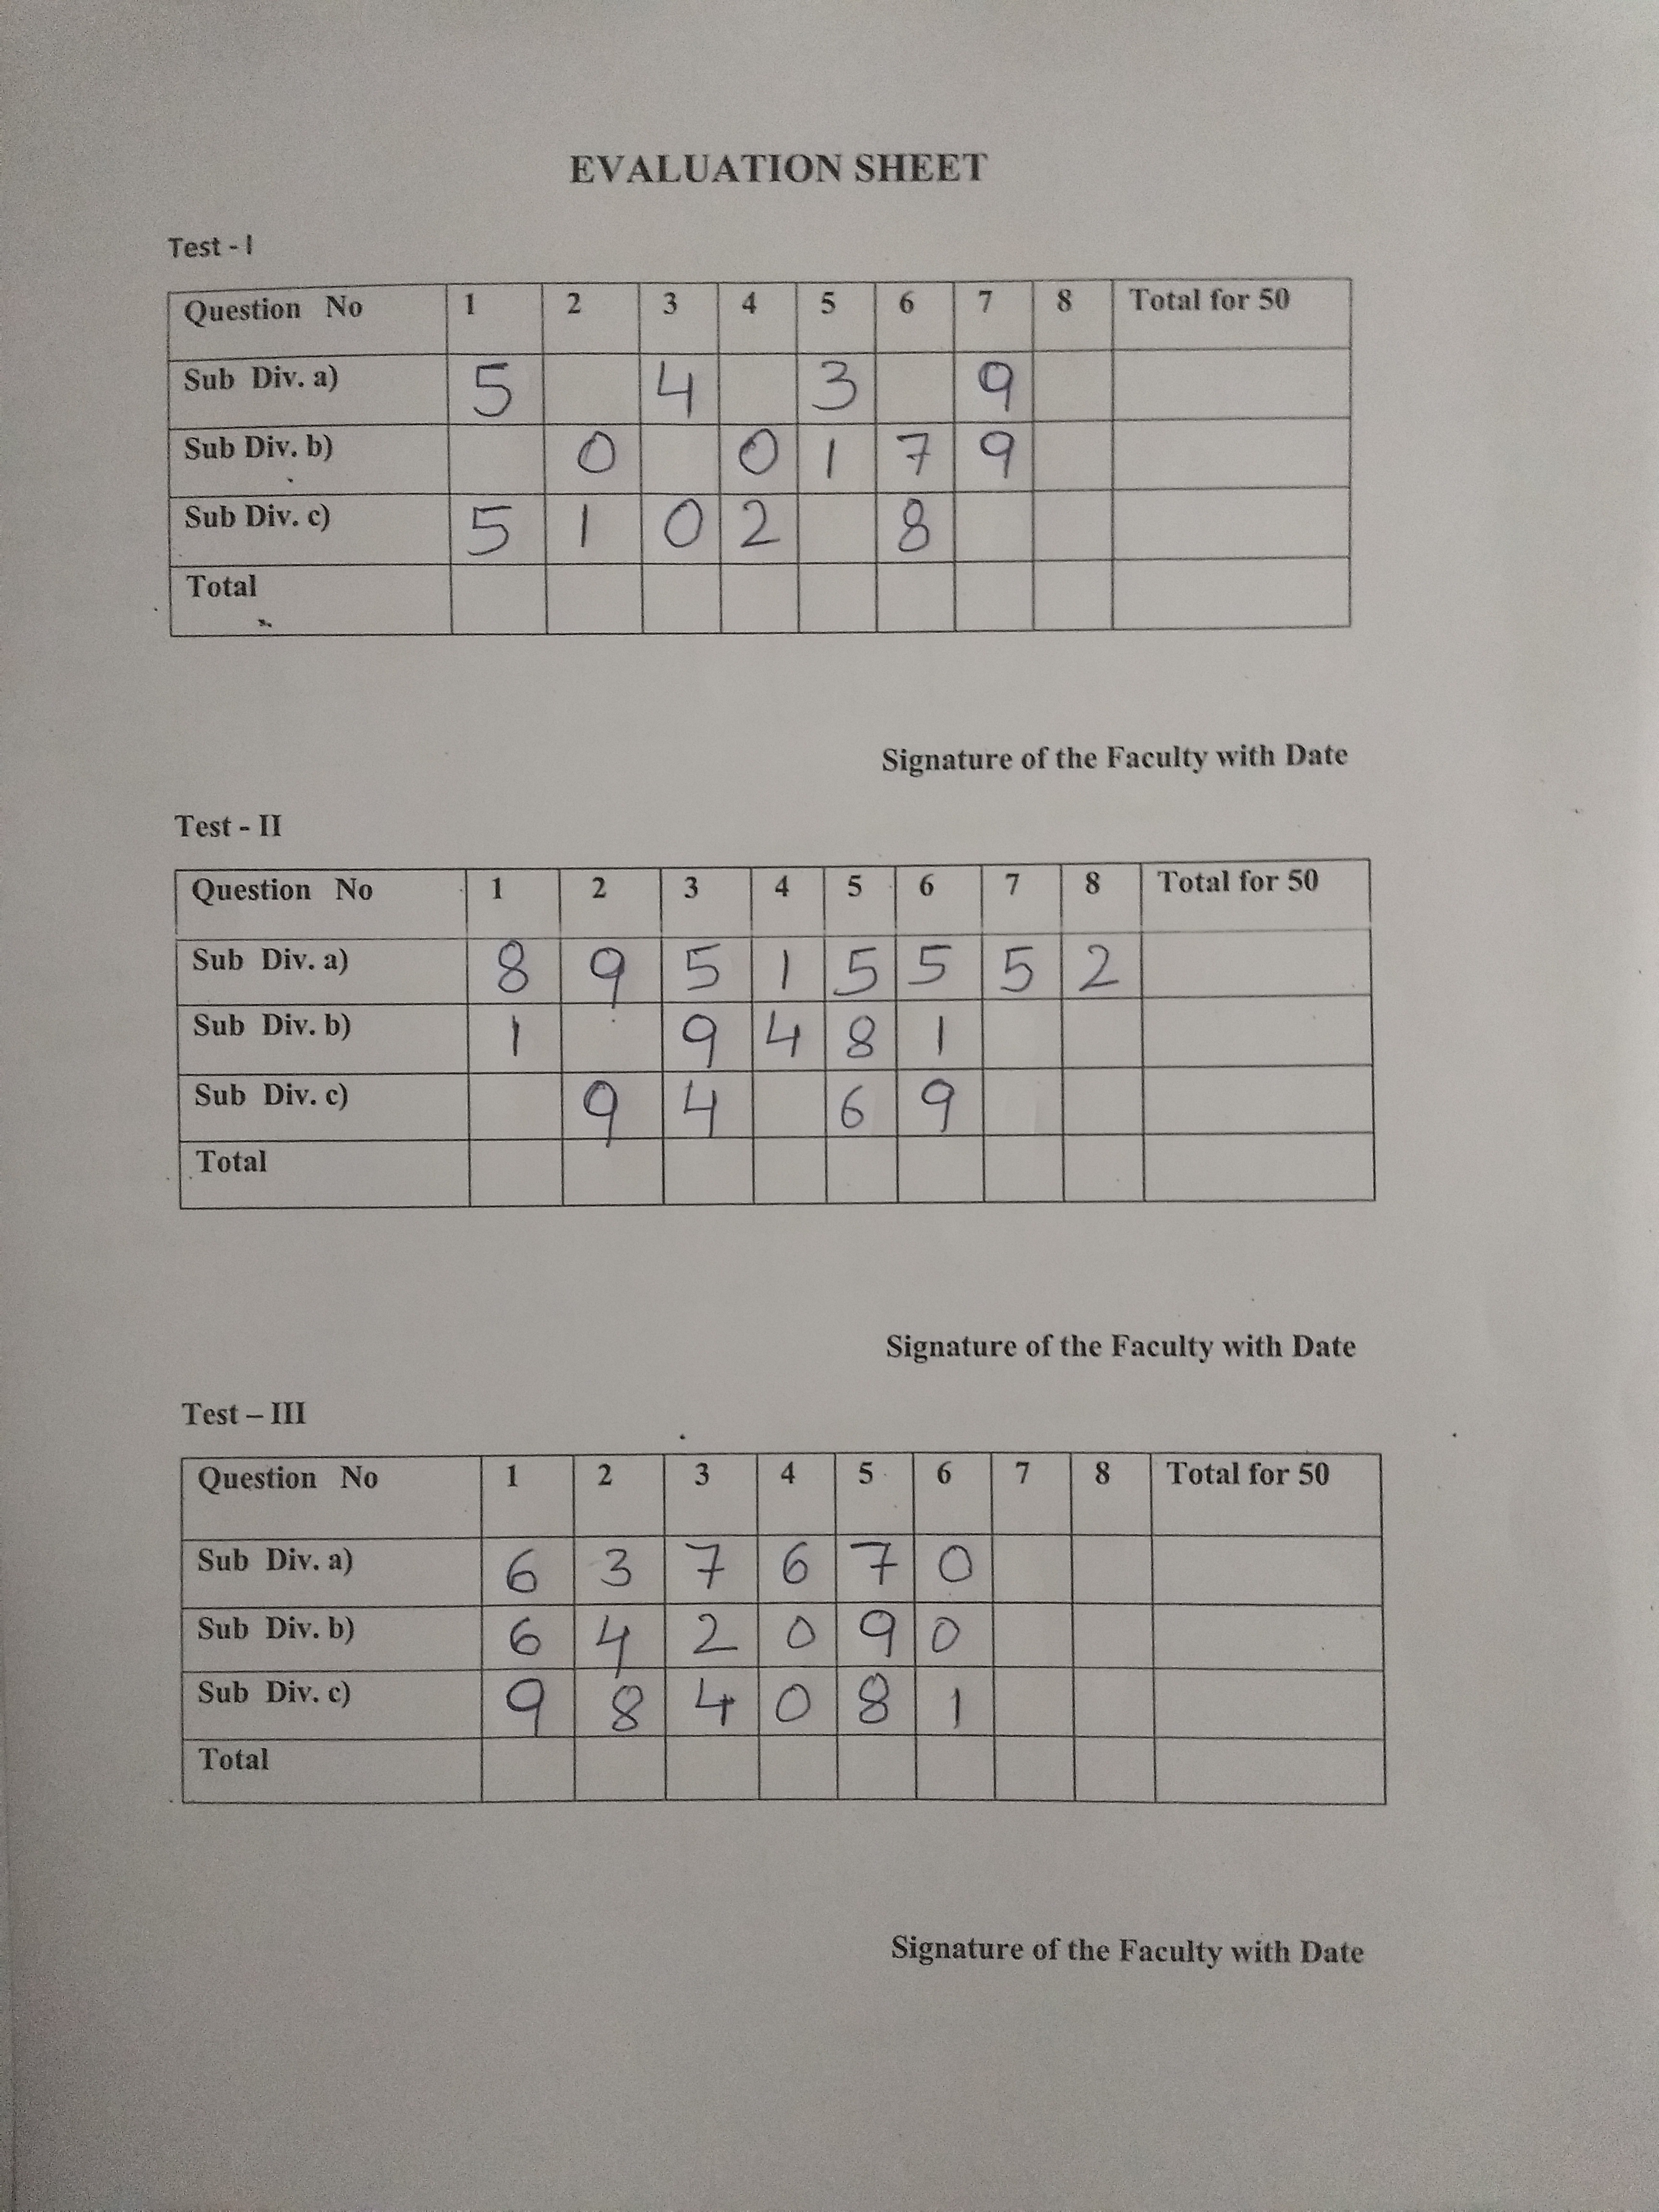 EVALUATION SHEET
Test - I
Question No 1 2 3 4 5 6 7 8 Total for 50
Sub Div. a) 5 4 3 9
Sub Div. b) 0 0 1 7 9
Sub Div. c) 5 1 0 2 8
Total
Signature of the Faculty with Date
Test - II
Question No 1 2 3 4 5 6 7 8 Total for 50
Sub Div. a) 8 9 5 1 5 5 5 2
Sub Div. b) 1 9 4 8 1
Sub Div. c) 9 4 6 9
Total
Signature of the Faculty with Date
Test – III
Question No 1 2 3 4 5 6 7 8 Total for 50
Sub Div. a) 6 3 7 6 7 0
Sub Div. b) 6 4 2 0 9 0
Sub Div. c) 9 8 4 0 8 1
Total
Signature of the Faculty with Date